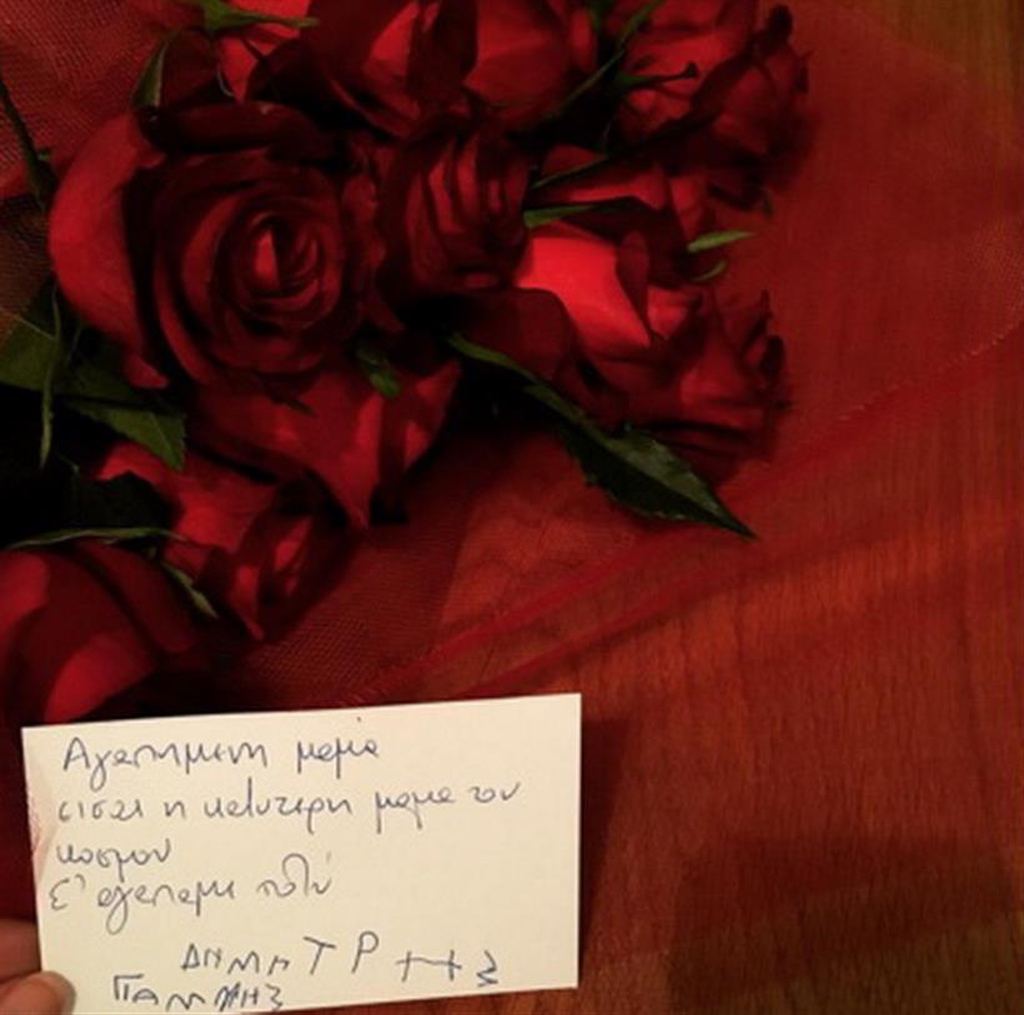 Αγαπημενη μαμα
εισαι η καλυτερη μαμα του
κοσμου
Σ' αγαπαμε πολύ
ΔΗΜΗΤΡΗΣ